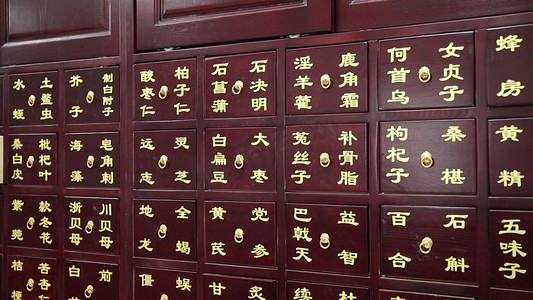 水蛭
土鳖虫
芥子
制白附子
酸枣仁
柏子仁
石菖蒲
石决明
淫羊藿
鹿角霜
何首乌
女贞子
蜂房
桑白皮
枇杷叶
海藻
皂角刺
远志
灵芝
白扁豆
大枣
菟丝子
补骨脂
枸杞子
桑椹
黄精
紫菀
款冬花
浙贝母
川贝母
地龙
全蝎
黄芪
党参
巴戟天
益智
百合
石斛
五味子
桔梗
苦杏仁
白
前
僵
蜈
甘
炙
续